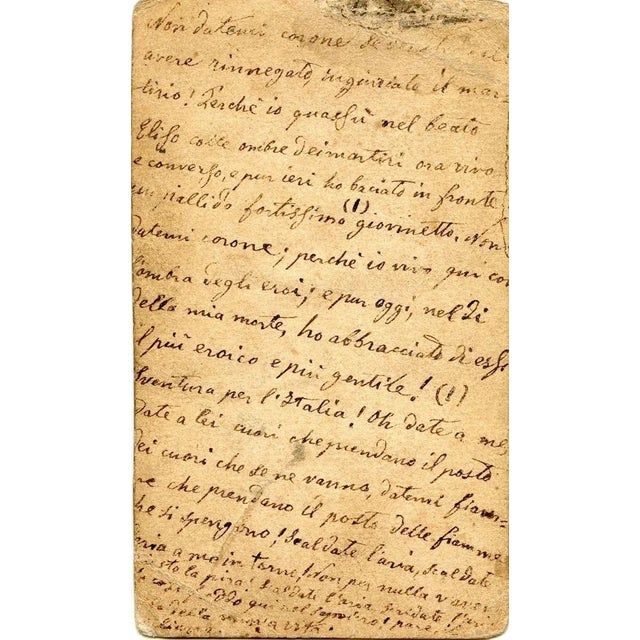 Non datemi corone
avere rinnegato, ingiuriato il mar-
tirio! Perchè io quassù nel beato
Eliso colle ombre dei martiri ora vivo
e converso, e pur ieri ho baciato in fronte
un pallido fortissimo (1) giovinetto. Non
datemi corone; perchè io vivo qui con
l'ombra degli eroi; e pur oggi, nel dì
della mia morte, ho abbracciato di essi
il più eroico e più gentile! (1)
Sventura per l'Italia! Oh date a me,
date a lei cuori che prendano il posto
dei cuori che se ne vanno, datemi fiam-
me che prendano il posto delle fiamme
che si spengono! Scaldate l'aria, scaldate
l'aria a me intorno! Non per nulla v'aver
la pira! Scaldate l'aria,
qui nel
della